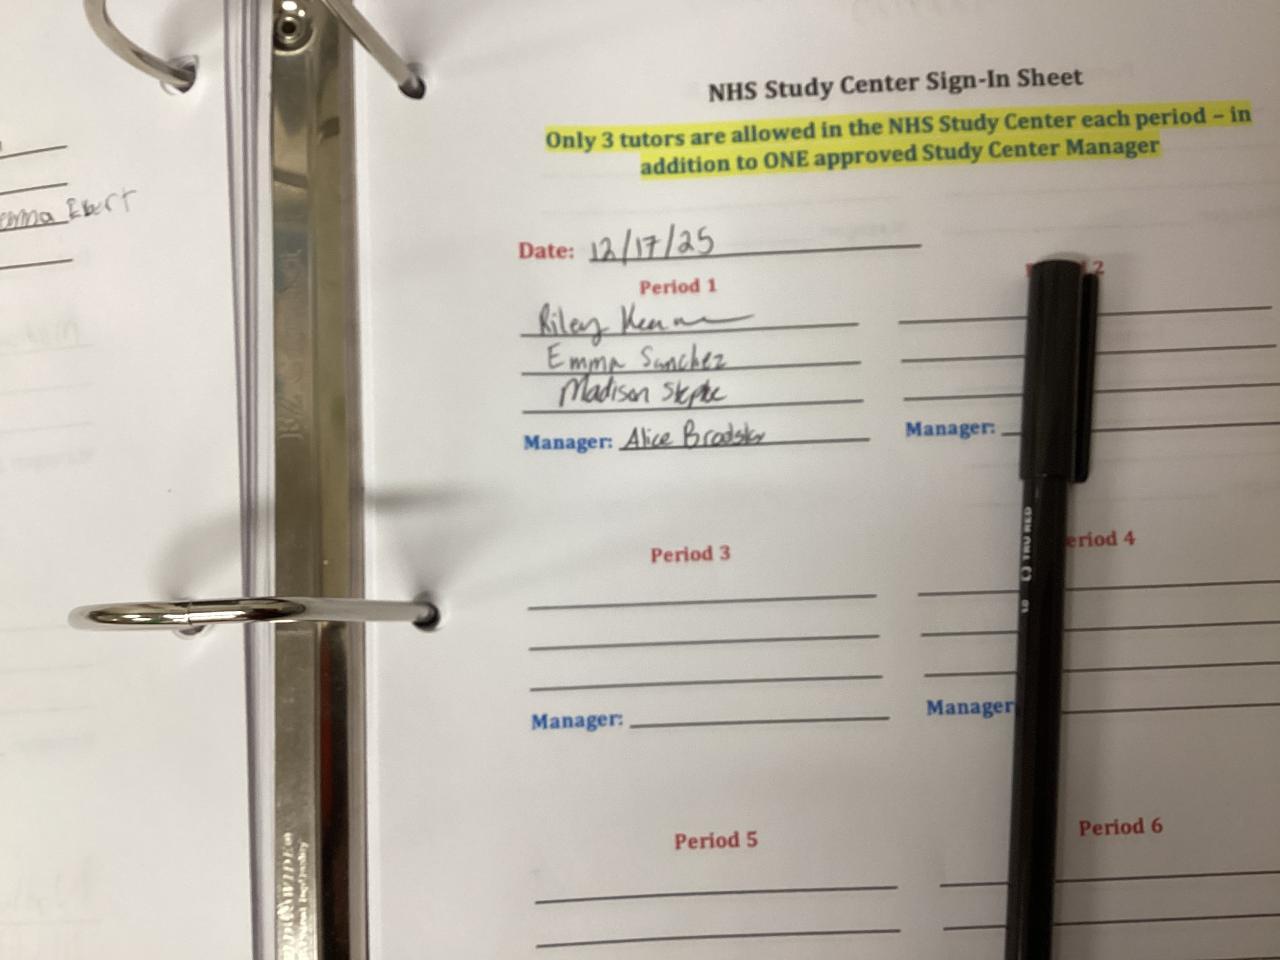 Emma Ebert
NHS Study Center Sign-In Sheet
Only 3 tutors are allowed in the NHS Study Center each period – in
addition to ONE approved Study Center Manager
Date: 12/17/25
Period 1
2
Riley
Emma Sanchez
Madison
Manager: Alice Brodsky
Manager:
Period 3
eriod 4
Manager:
Manager
Period 5
Period 6
TRU RED